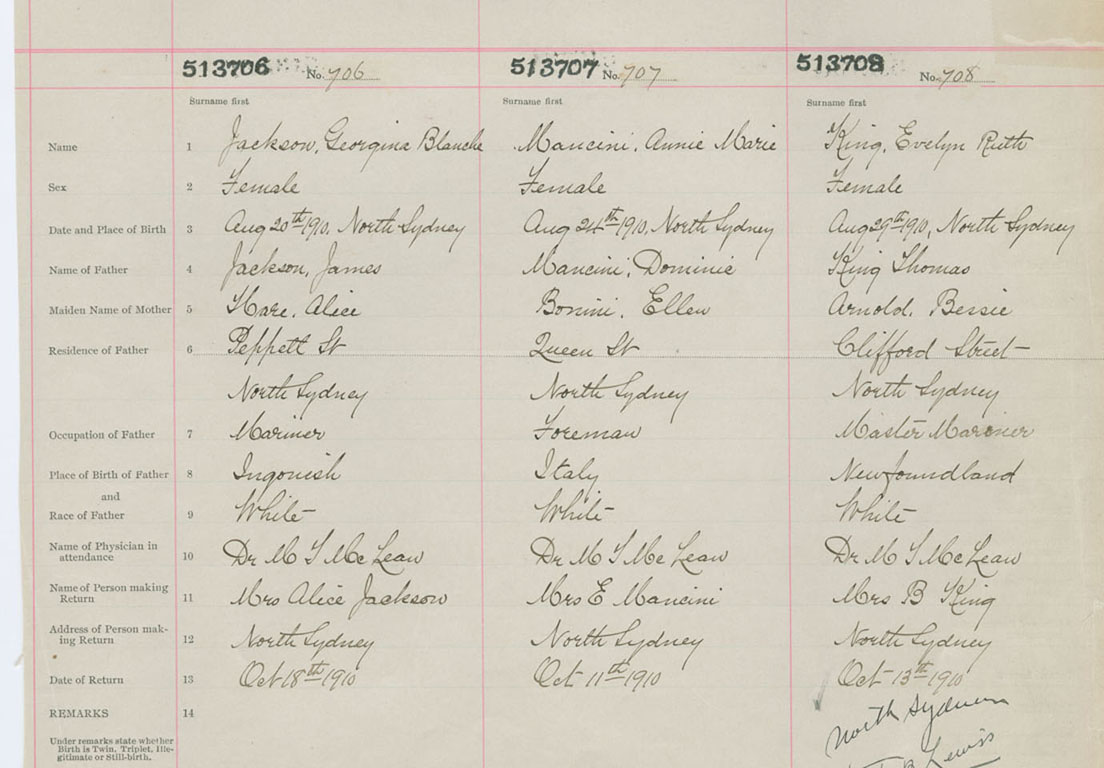 513706 No. 706 513707 No. 707 513708 No. 708
Surname first Surname first Surname first
Name 1 Jackson, Georgina Blanche Mancini, Annie Marie King, Evelyn Ruth
Sex 2 Female Female Female
Date and Place of Birth 3 Aug 20th 1910, North Sydney Aug 24th 1910, North Sydney Aug 29th 1910, North Sydney
Name of Father 4 Jackson, James Mancini, Dominic King Thomas
Maiden Name of Mother 5 Hare, Alice Bonini, Ellen Arnold, Bessie
Residence of Father 6 Peppett St Queen St Clifford Street
North Sydney North Sydney North Sydney
Occupation of Father 7 Mariner Foreman Master Mariner
Place of Birth of Father 8 Ingonish Italy Newfoundland
and
Race of Father 9 White White White
Name of Physician in
attendance 10 Dr M T McLean Dr M T McLean Dr M T McLean
Name of Person making
Return 11 Mrs Alice Jackson Mrs E Mancini Mrs B King
Address of Person mak-
ing Return 12 North Sydney North Sydney North Sydney
Date of Return 13 Oct 18th 1910 Oct 11th 1910 Oct 13th 1910
REMARKS 14
North Sydney
Lewis
Under remarks state whether
Birth is Twin, Triplet, Ille-
gitimate or Still-birth.